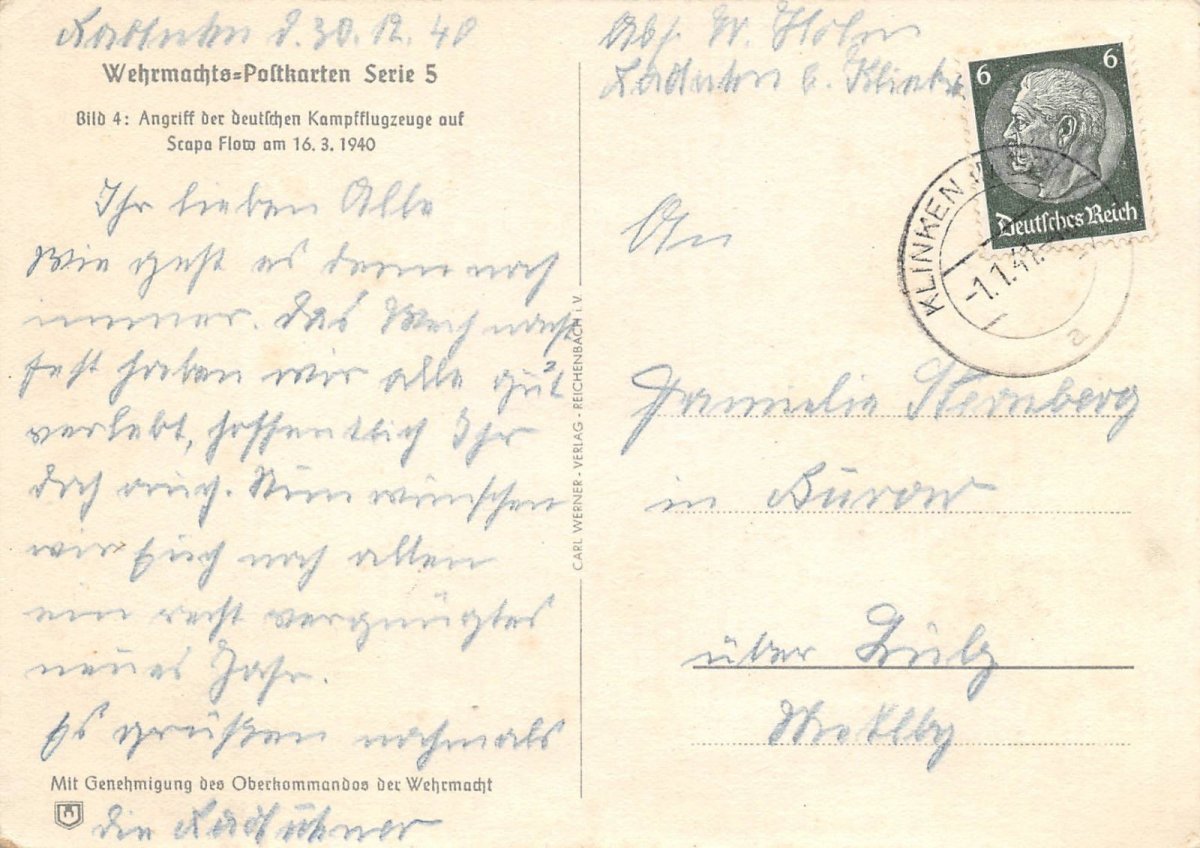 Kaduhn d. 30.12.40
Wehrmachts=Postkarten Serie 5
Bild 4: Angriff der deutschen Kampfflugzeuge auf
Scapa Flow am 16. 3. 1940
Ihr lieben Alle
Wie geht es denn noch
immer. Das Weihnacht
fest haben wir alle gut
verlebt, hoffentlich Ihr
doch auch. Nun wünschen
wir Euch noch allen
ein recht vergnügtes
neues Jahr.
Es grüßen nochmals
Mit Genehmigung des Oberkommandos der Wehrmacht
die
CARL WERNER - VERLAG - REICHENBACH i. V.
Abs. W. Holm
b. Klinken
6 6
Deutsches Reich
KLINKEN
-1.1.41
a
An
Familie Sternberg
in Burow
über Lübz
Meklbg